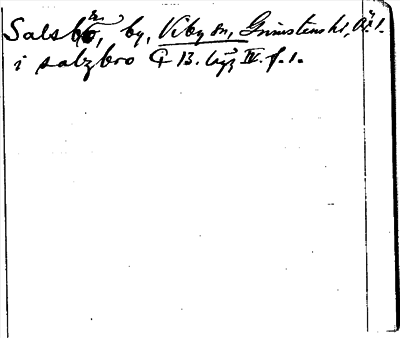 Salsbro, by, Viby sn, Grimstens hd, Ör. l.
i salzbro G B. IV. f. 1.